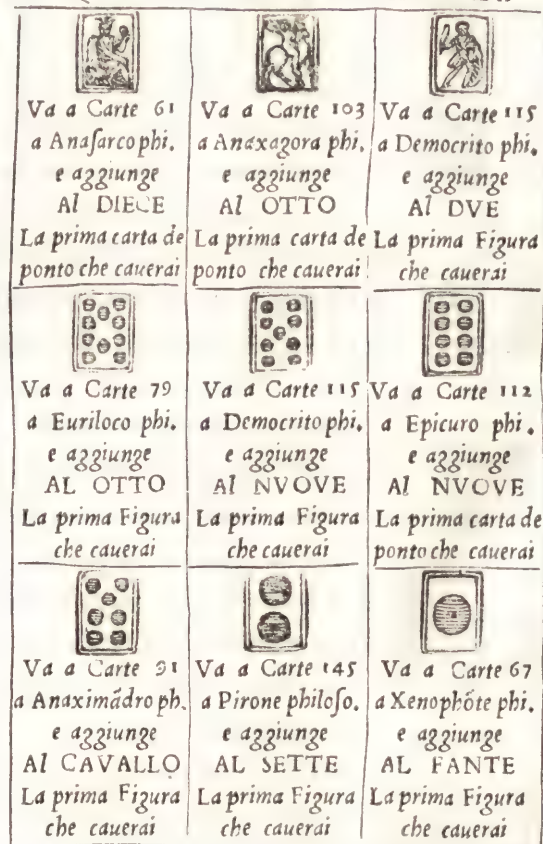 Va a Carte 61
a Anaſarco phi.
e aggiunge
Al DIECE
La prima carta de
ponto che cauerai
Va a Carte 103
a Anaxagora phi.
e aggiunge
Al OTTO
La prima carta de
ponto che cauerai
Va a Carte 115
a Democrito phi.
e aggiunge
Al DVE
La prima Figura
che cauerai
Va a Carte 79
a Euriloco phi.
e aggiunge
AL OTTO
La prima Figura
che cauerai
Va a Carte 115
a Democrito phi.
e aggiunge
Al NVOVE
La prima Figura
che cauerai
Va a Carte 112
a Epicuro phi.
e aggiunge
Al NVOVE
La prima carta de
ponto che cauerai
Va a Carte 91
a Anaximãdro ph.
e aggiunge
Al CAVALLO
La prima Figura
che cauerai
Va a Carte 145
a Pirone philoſo.
e aggiunge
AL SETTE
La prima Figura
che cauerai
Va a Carte 67
a Xenophõte phi.
e aggiunge
AL FANTE
La prima Figura
che cauerai